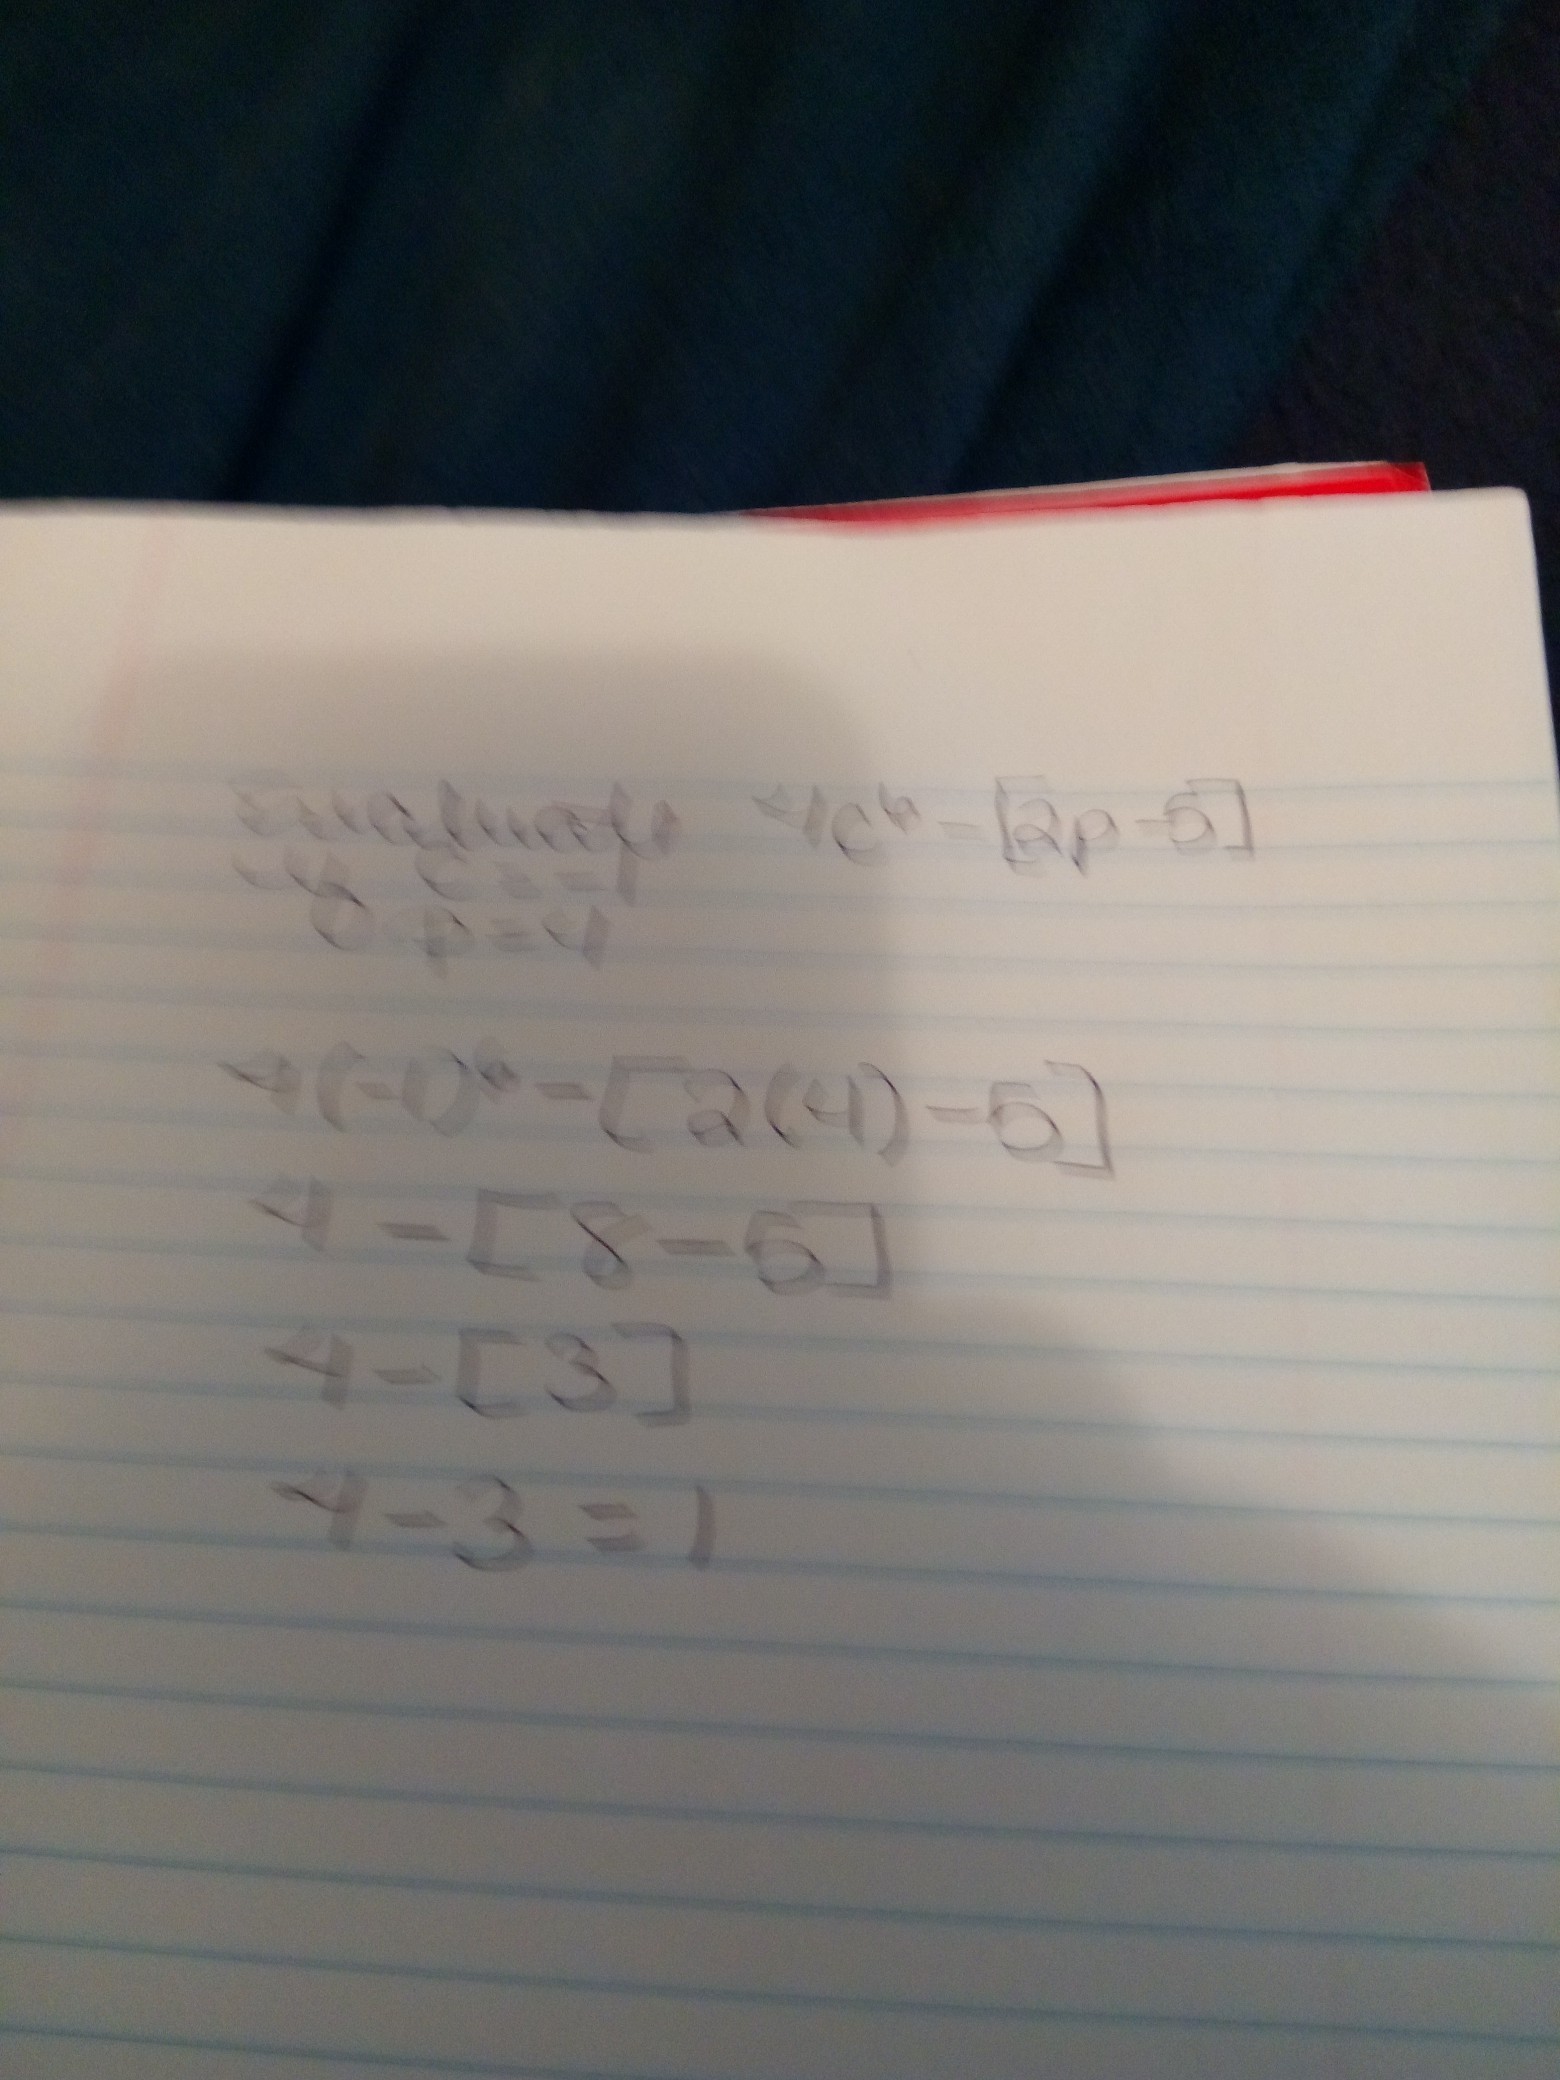 Evaluate 4c⁶ - [2p - 5]
if c = -1
& p = 4
4(-1)⁶ - [2(4) - 5]
4 - [8 - 5]
4 - [3]
4 - 3 = 1